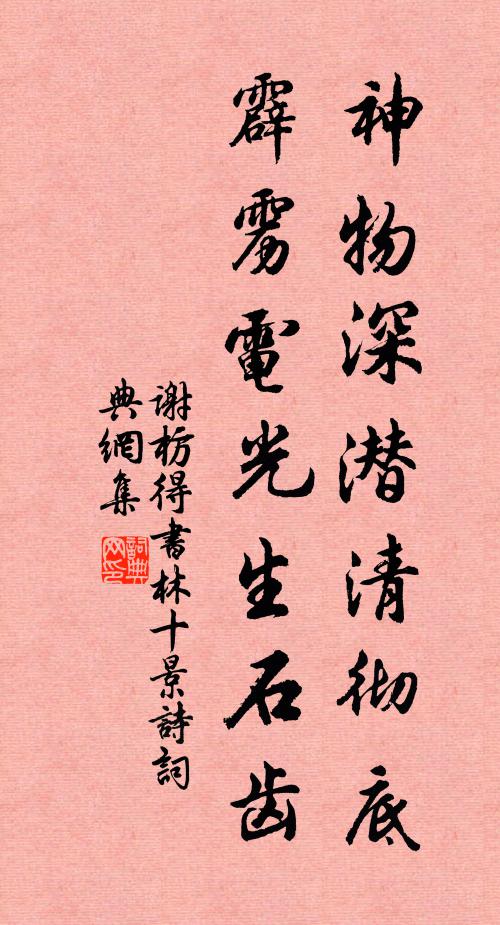 神物深潜清彻底
霹雳電光生石齿
谢枋得書林十景詩詞
典網集
詞典
网印